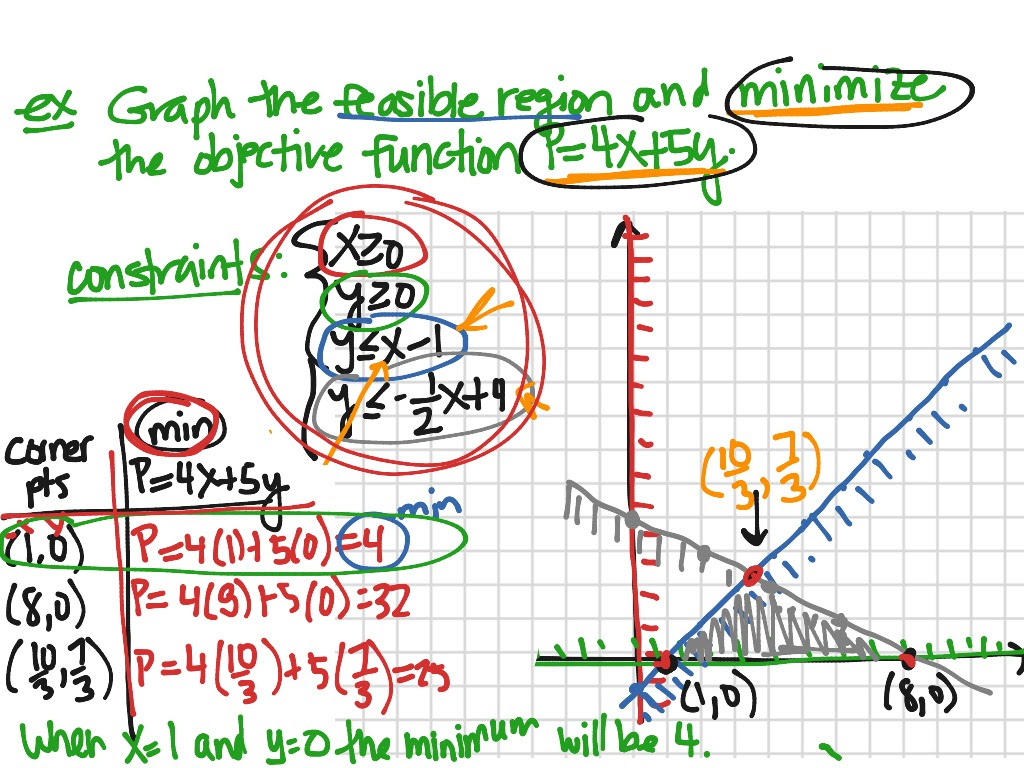 ex Graph the feasible region and minimize
the objective function P=4x+5y.
constraints:
x≥0
y≥0
y≤x-1
y≤-1/2x+4
min
corner pts
P=4x+5y
min
x y
(1,0) P=4(1)+5(0)=4
(8,0) P=4(8)+5(0)=32
(10/3,7/3) P=4(10/3)+5(7/3)=25
(10/3,7/3)
(1,0)
(8,0)
When x=1 and y=0 the minimum will be 4.